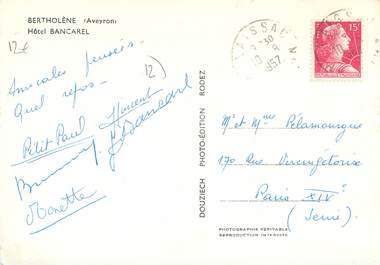 BERTHOLÈNE (Aveyron)
Hôtel BANCAREL
12€
12
Amicales pensées.
Quel repos -
Petit Paul
Vincent
Bancarel
Nanette
DOUZIECH PHOTO-ÉDITION RODEZ
15F
Mr et Mme Pélamourgue
170 Rue Vercingétorix
Paris XIVe
(Seine)
PHOTOGRAPHIE VÉRITABLE
REPRODUCTION INTERDITE